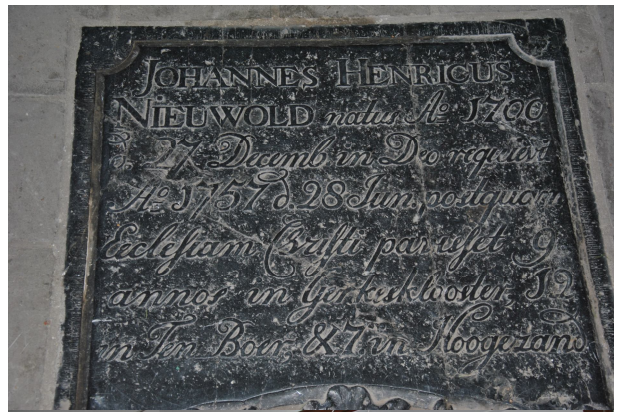 JOHANNES HENRICUS
NIEUWOLD natus Aº 1700
d. 27 Decemb in Deo requievit
Aº 1757 d 28 Jun, postquam
Ecclesiam Christi paviset 9
annos in Gerkesklooster, 12
in Ten Boer, & 7 in Hoogezand